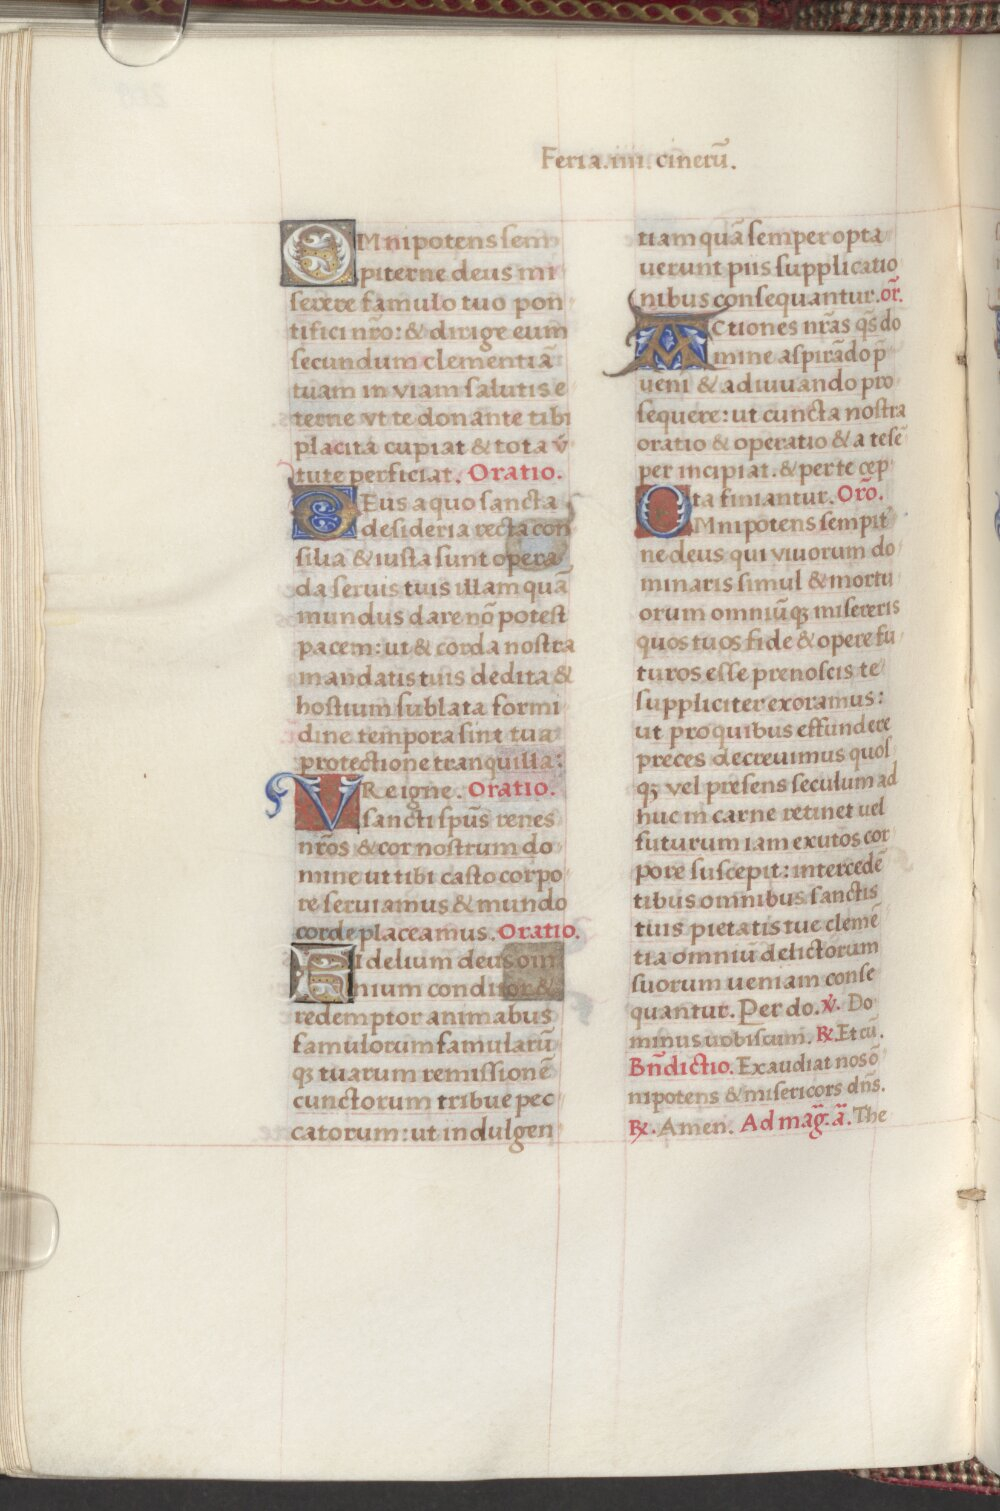 Feria.iiii. cinerū.
OMnipotens sem
piterne deus mi
serere famulo tuo pon
tifici nr̄o: & dirige eum
secundum clementiā
tuam in viam salutis e
terne vt te donante tibi
placita cupiat & tota v̄
tute perficiat. Oratio.
DEus a quo sancta
desideria recta con
silia & iusta sunt opera
da seruis tuis illam quā
mundus dare nō potest
pacem: ut & corda nostra
mandatis tuis dedita &
hostium sublata formi
dine tempora sint tua
protectione tranquilla:
VRe igne. Oratio.
sancti spūs renes
nr̄os & cor nostrum do
mine ut tibi casto corpo
re seruiamus & mundo
corde placeamus. Oratio.
FIdelium deus om
nium conditor &
redemptor animabus
famulorum famularū
qꝫ tuarum remissionē
cunctorum tribue pec
catorum: ut indulgen
tiam quā semper opta
uerunt piis supplicatio
nibus consequantur. or̄.
ACtiones nr̄as qs̄ do
mine aspirādo p̄
ueni & adiuuando pro
sequere: ut cuncta nostra
oratio & operatio & a te sē
per incipiat. & per te cep
ta finiantur. Orō.
OMnipotens sempit̄
ne deus qui viuorum do
minaris simul & mortu
orum omniūqꝫ misereris
quos tuos fide & opere fu
turos esse prenoscis te
suppliciter exoramus:
ut pro quibus effundere
preces decreuimus quos
qꝫ vel presens seculum ad
huc in carne retinet uel
futurum iam exutos cor
pore suscepit: intercedē
tibus omnibus sanctis
tuis pietatis tue clemē
tia omniū delictorum
suorum ueniam conse
quantur. Per do. v̇. Do
minus uobiscum. ℞. Et cū.
Bn̄dictio. Exaudiat nos ō
nipotens & misericors dn̄s.
℞. Amen. Ad mag̃. ã. The